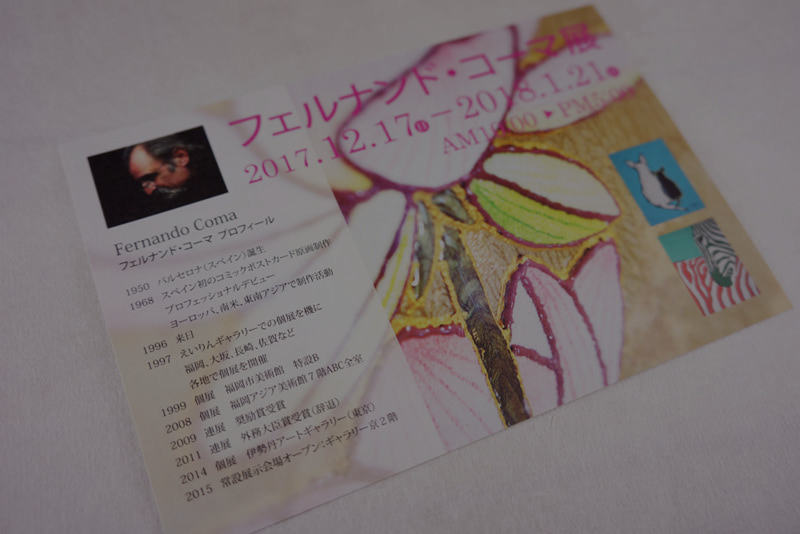 フェルナンド・コーマ展
2017.12.17㊐－2018.1.21㊐
AM10:00 ▶ PM5:00
Fernando Coma
フェルナンド・コーマ プロフィール
1950 バルセロナ(スペイン)誕生
1968 スペイン初のコミックポストカード原画制作
プロフェッショナルデビュー
ヨーロッパ、南米、東南アジアで制作活動
1996 来日
1997 えいりんギャラリーでの個展を機に
福岡、大坂、長崎、佐賀など
各地で個展を開催
1999 個展 福岡市美術館 特設B
2008 個展 福岡アジア美術館７階ABC全室
2009 連展 奨励賞受賞
2011 連展 外務大臣賞受賞(辞退)
2014 個展 伊勢丹アートギャラリー(東京)
2015 常設展示会場オープン:ギャラリー京２階